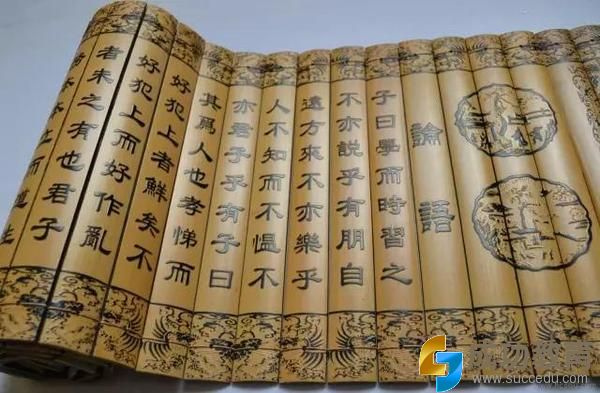 論語
子曰學而時習之
不亦說乎有朋自
遠方來不亦樂乎
人不知而不愠不
亦君子乎有子曰
其爲人也孝悌而
好犯上者鮮矣不
好犯上而好作亂
者未之有也君子
本本立而道生
www.succedu.com